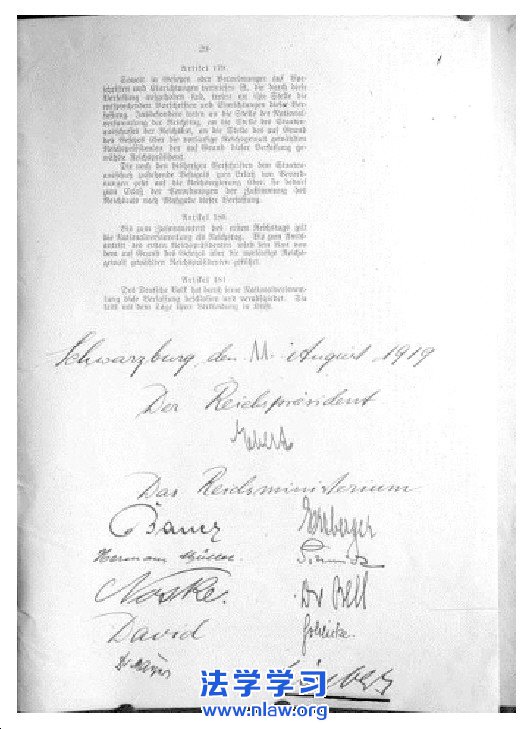 Artikel 179.
Soweit in Gesetzen oder Verordnungen auf Vor-
schriften und Einrichtungen verwiesen ist, die durch diese
Verfassung aufgehoben sind, treten an ihre Stelle die
entsprechenden Vorschriften und Einrichtungen dieser Ver-
fassung. Insbesondere treten an die Stelle der National-
versammlung der Reichstag, an die Stelle des Staaten-
ausschusses der Reichsrat, an die Stelle des auf Grund
des Gesetzes über die vorläufige Reichsgewalt gewählten
Reichspräsidenten der auf Grund dieser Verfassung ge-
wählte Reichspräsident.
Die nach den bisherigen Vorschriften dem Staaten-
ausschuß zustehende Befugnis zum Erlaß von Verord-
nungen geht auf die Reichsregierung über. Sie bedarf
zum Erlaß der Verordnungen der Zustimmung des
Reichsrats nach Maßgabe dieser Verfassung.
Artikel 180.
Bis zum Zusammentritt des ersten Reichstags gilt
die Nationalversammlung als Reichstag. Bis zum Amts-
antritt des ersten Reichspräsidenten wird sein Amt von
dem auf Grund des Gesetzes über die vorläufige Reichs-
gewalt gewählten Reichspräsidenten geführt.
Artikel 181.
Das Deutsche Volk hat durch seine Nationalversamm-
lung diese Verfassung beschlossen und verabschiedet. Sie
tritt mit dem Tage ihrer Verkündung in Kraft.
Schwarzburg, den 11. August 1919
Der Reichspräsident
Ebert
Das Reichsministerium
Bauer Erzberger
Hermann Müller. Schmidt
Noske. Dr Bell
David
法学学习
www.nlaw.org